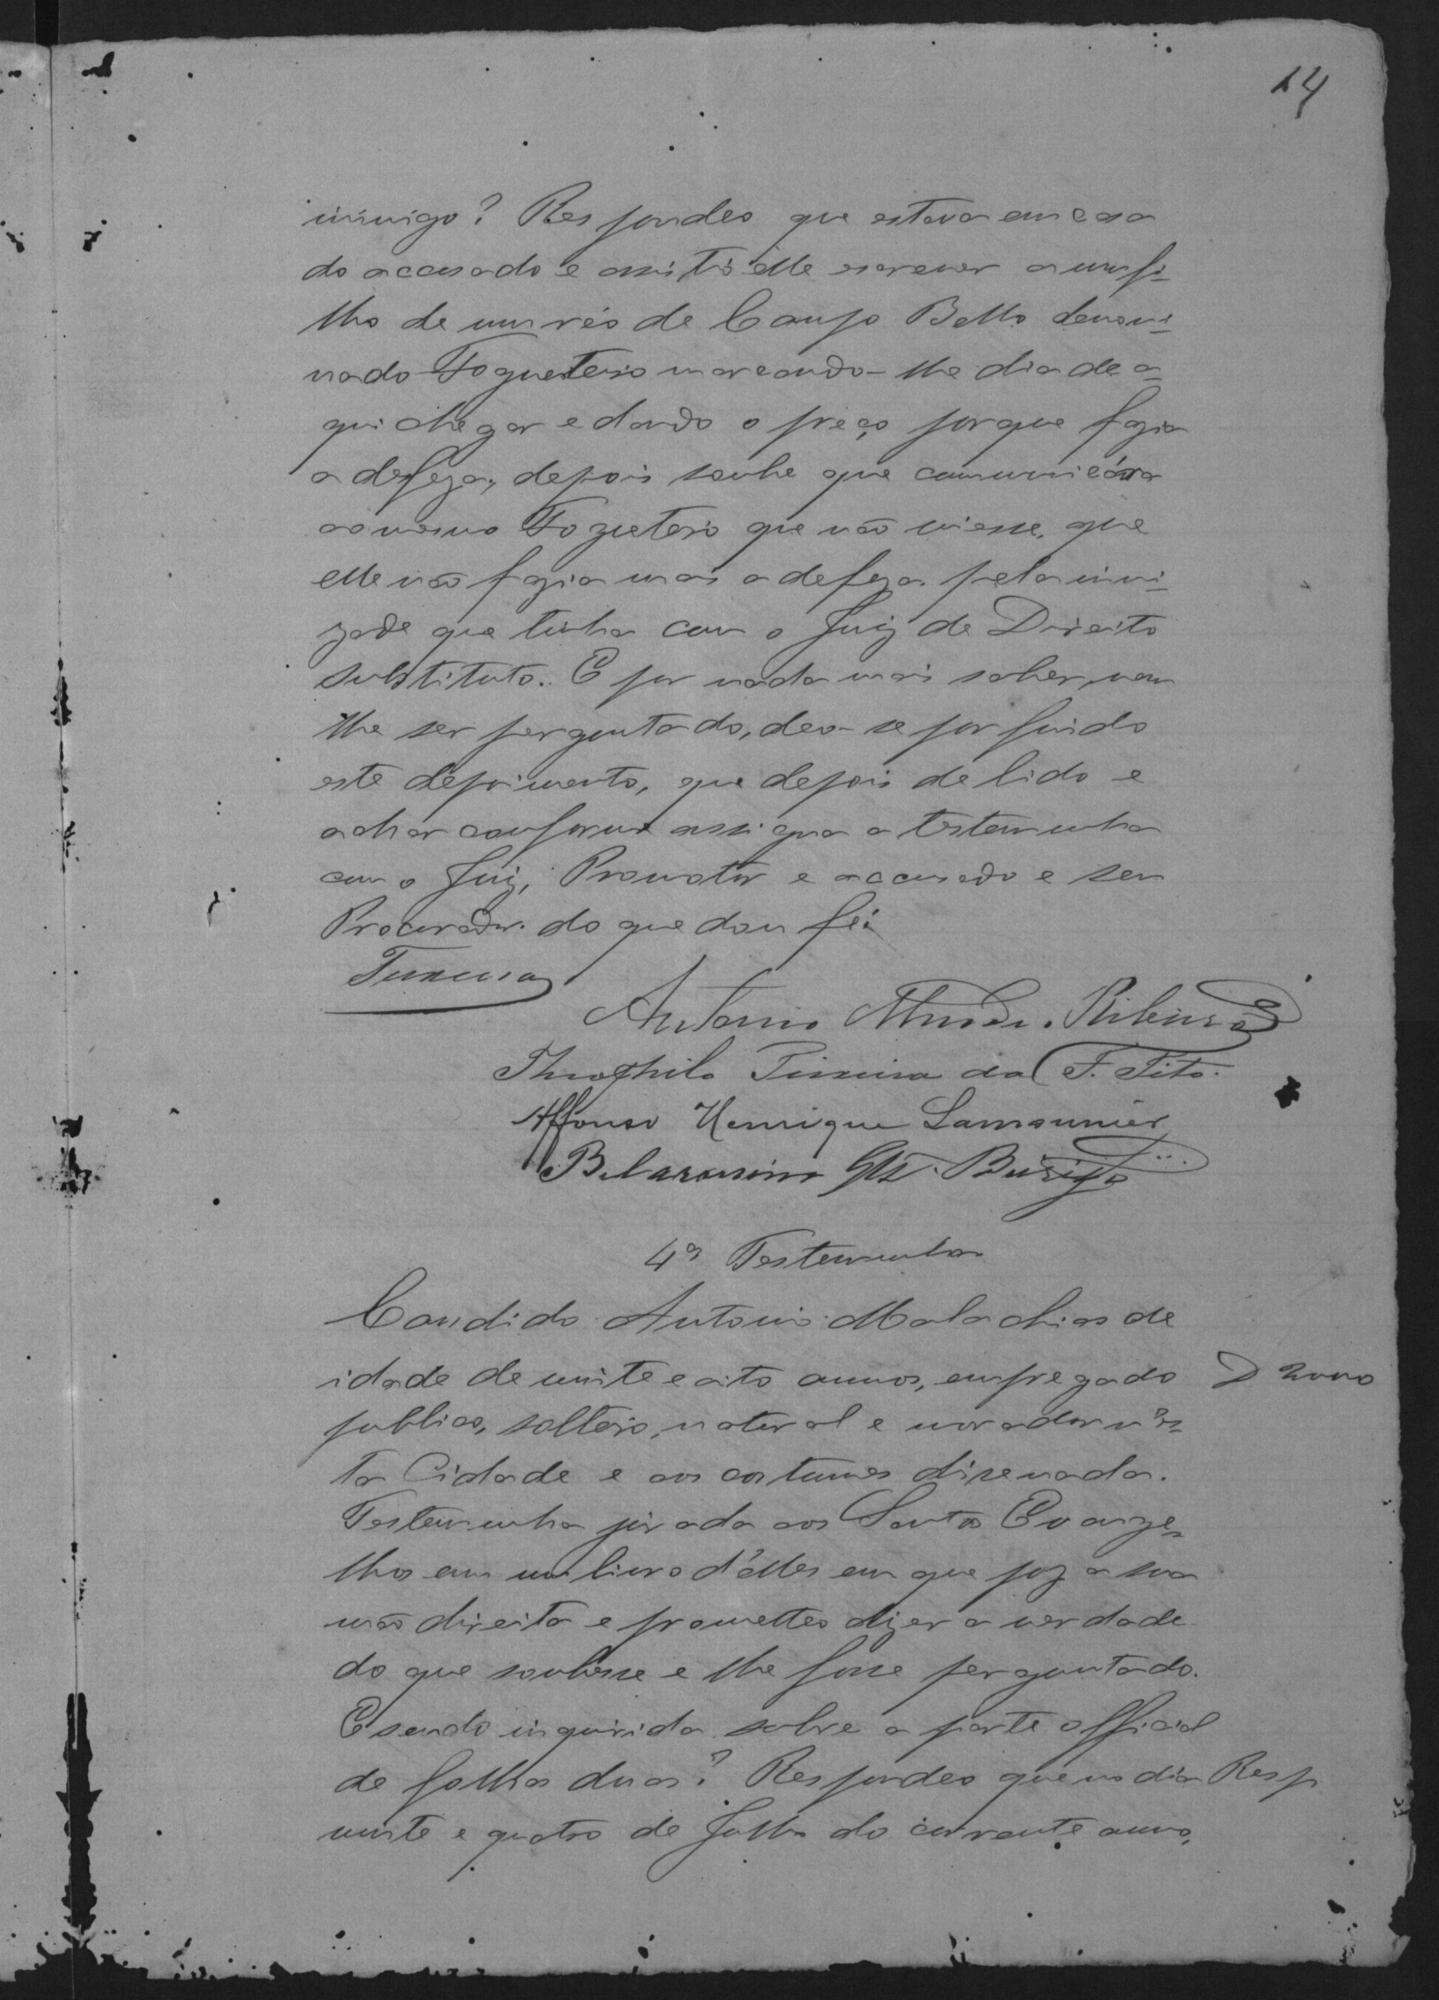 14
inimigo? Respondeo que estava em casa
do accusado e assistio elle escrever a um fi-
lho de um réo de Campo Bello denomi-
nado Fogueteiro marcando-lhe dia de a-
qui chegar e dando o preço porque fazia
a defeza, depois soube que communicára
ao mesmo Fogueteiro que não viesse, que
elle não fazia mais a defeza pela inimi-
zade que tinha com o Juiz de Direito
substituto. E por nada mais saber, nem
lhe ser perguntado, deo-se por findo
este depoimento, que depois de lido e
achar conforme assigna a testemunha
com o Juiz, Promotor e accusado e seu
Procurador. do que dou fé.
Teixeira
Antonio Ribeiro
Theophilo Teixeira da F. Tito.
Affonso Henrique Lamounier
Belarmino
4ª Testemunha
Candido Antonio Malachias de
idade de vinte e oito annos, empregado
publico, solteiro, natural e morador n'es-
ta Cidade e aos costumes disse nada.
Testemunha jurada aos Santos Evange-
lhos em um livro d'elles em que poz a sua
mão direita e prometteo dizer a verdade
do que soubesse e lhe fosse perguntado.
E sendo inquirida sobre a parte official
de folhas duas? Respondeo que no dia Resp
vinte e quatro de Julho do corrente anno,